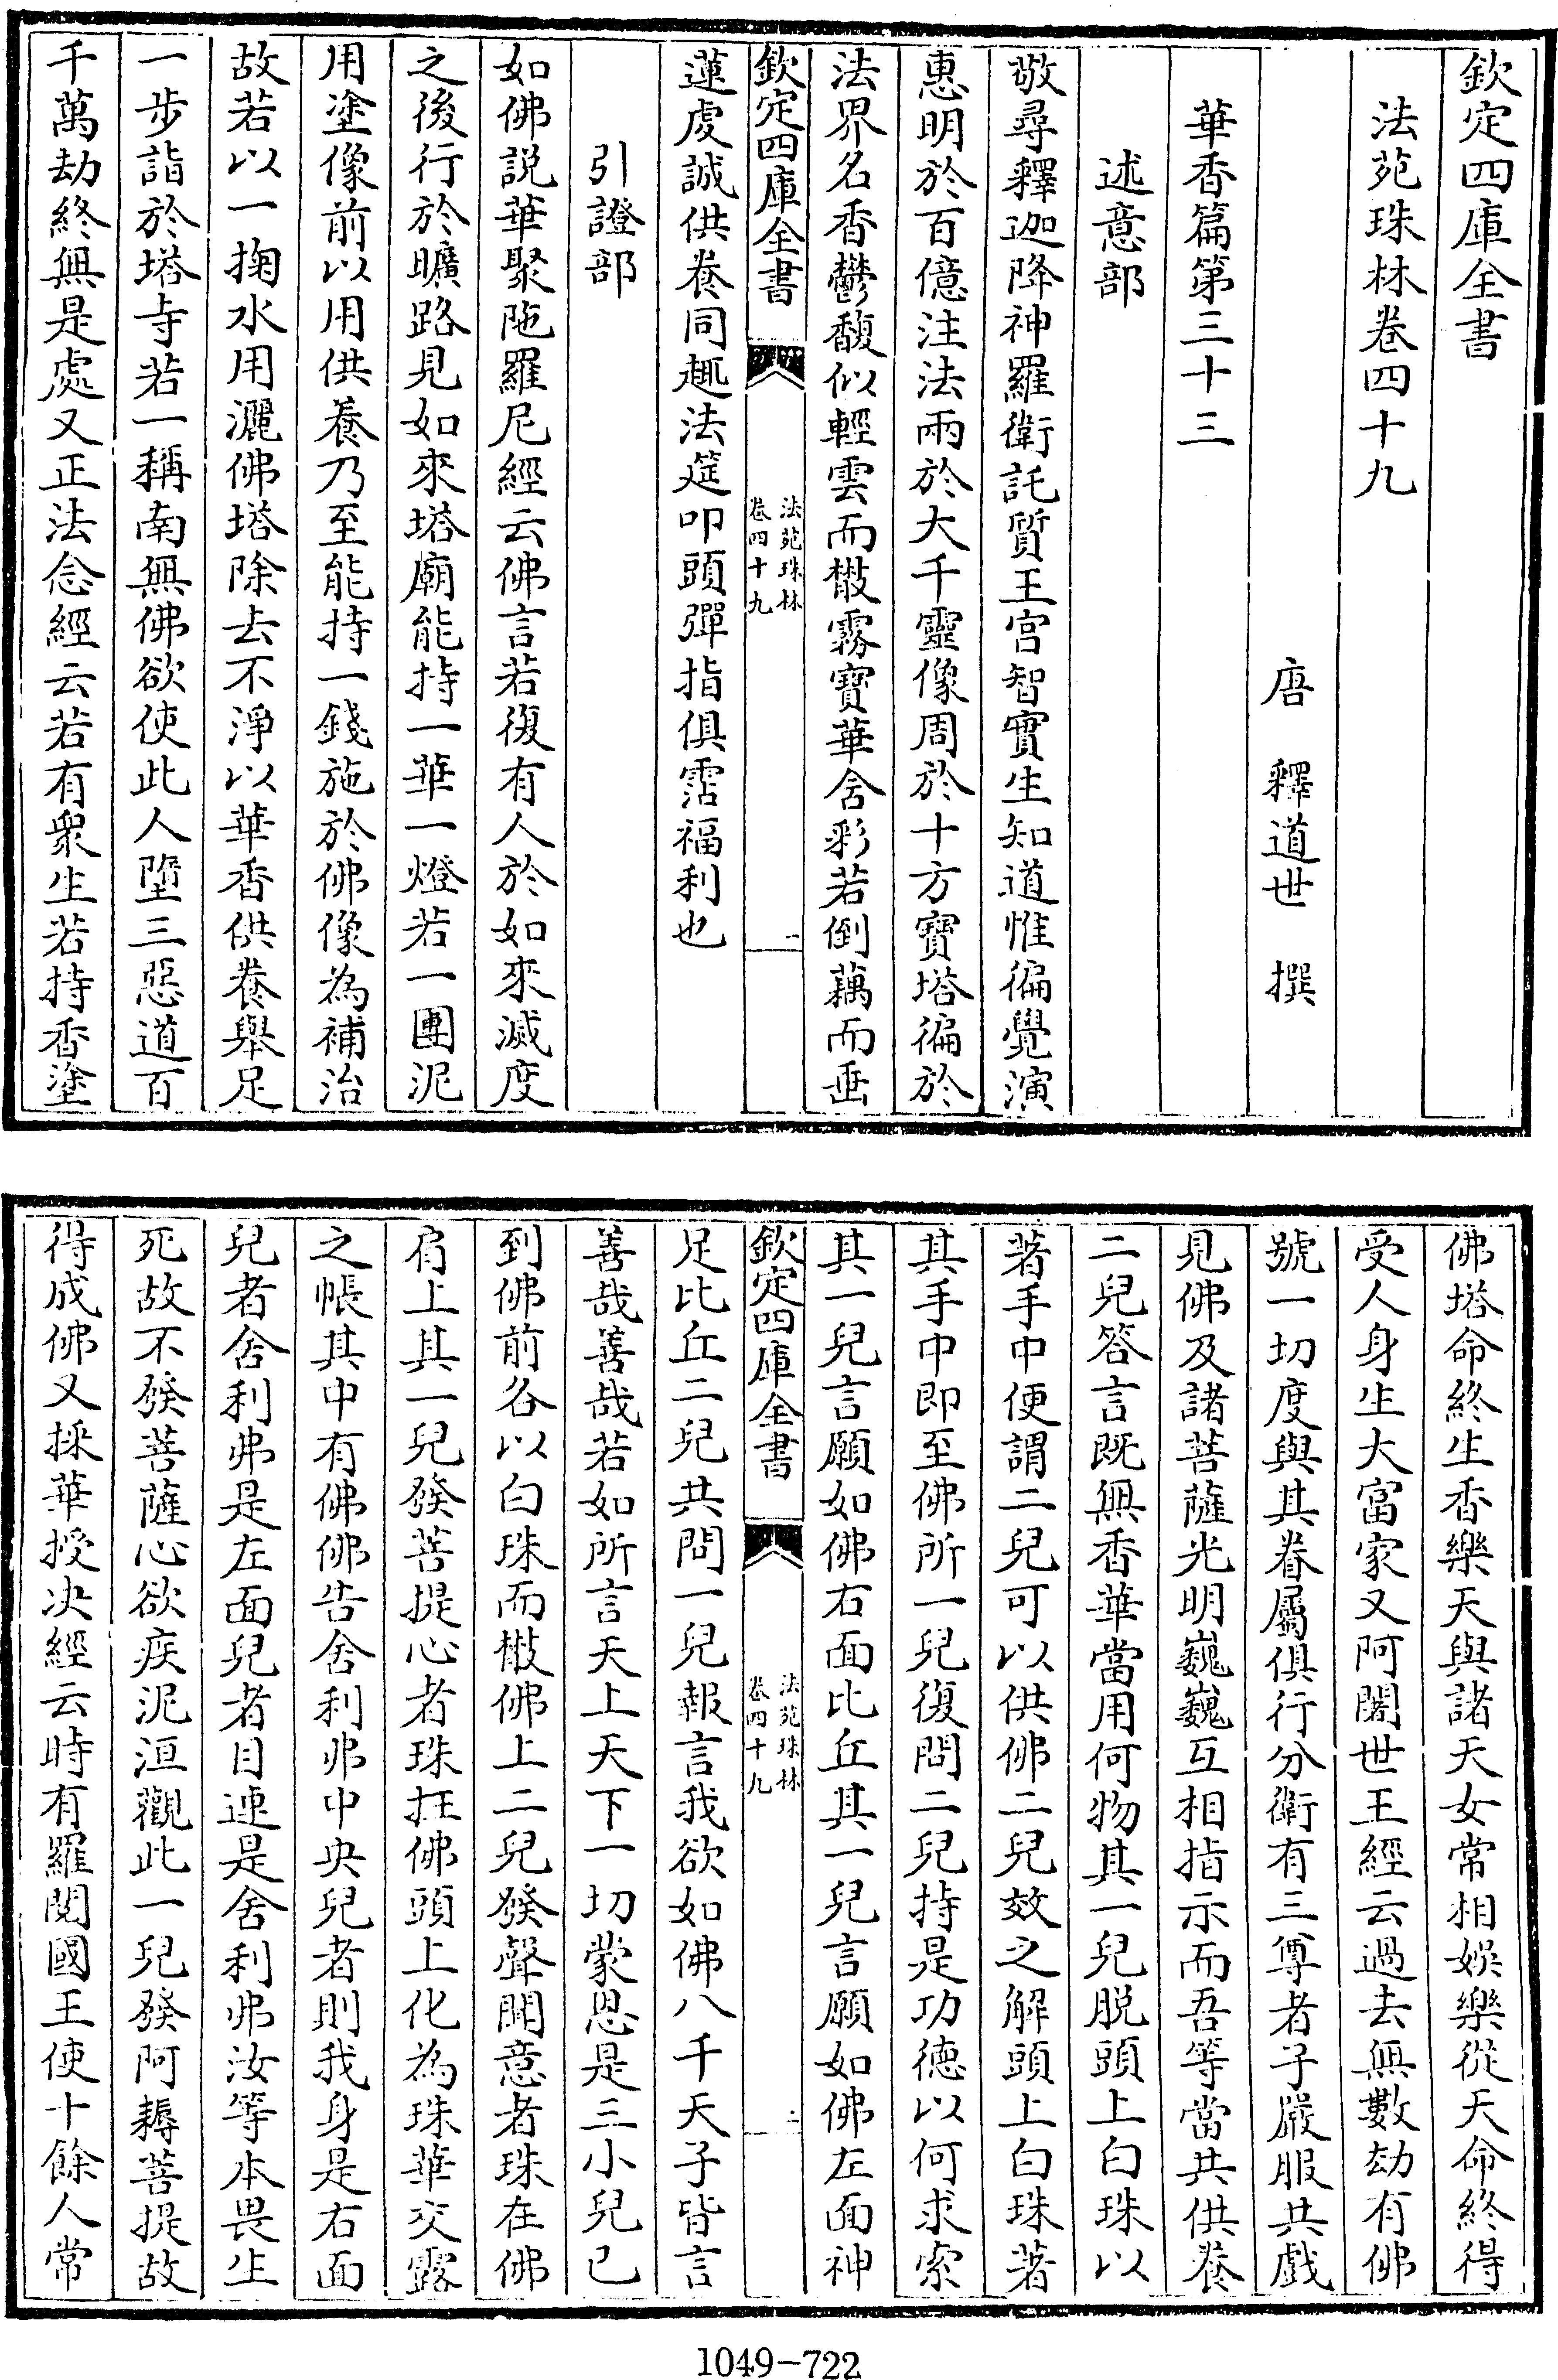 欽定四庫全書
法苑珠林卷四十九
唐　釋道世　撰
華香篇第三十三
述意部
敬尋釋迦降神羅衛託質王宫智實生知道惟徧覺演
惠明於百億注法雨於大千靈像周於十方寶塔徧於
法界名香鬱馥似輕雲而㪚霧寶華含彩若倒藕而垂
欽定四庫全書
法苑珠林
卷四十九
一
蓮虔誠供養同趣法筵叩頭彈指俱霑福利也
引證部
如佛説華聚陁羅尼經云佛言若復有人於如來滅度
之後行於曠路見如來塔廟能持一華一燈若一團泥
用塗像前以用供養乃至能持一錢施於佛像為補治
故若以一掬水用灑佛塔除去不淨以華香供養舉足
一步詣於塔寺若一稱南無佛欲使此人墮三惡道百
千萬劫終無是處又正法念經云若有衆生若持香塗
佛塔命終生香樂天與諸天女常相娛樂從天命終得
受人身生大富家又阿闍世王經云過去無數劫有佛
號一切度與其眷屬俱行分衛有三尊者子嚴服共戲
見佛及諸菩薩光明巍巍互相指示而吾等當共供養
二兒答言既無香華當用何物其一兒脱頭上白珠以
著手中便謂二兒可以供佛二兒效之解頭上白珠著
其手中即至佛所一兒復問二兒持是功德以何求索
其一兒言願如佛右面比丘其一兒言願如佛左面神
欽定四庫全書
法苑珠林
卷四十九
二
足比丘二兒共問一兒報言我欲如佛八千天子皆言
善哉善哉若如所言天上天下一切蒙恩是三小兒已
到佛前各以白珠而㪚佛上二兒發聲聞意者珠在佛
肩上其一兒發菩提心者珠在佛頭上化為珠華交露
之帳其中有佛佛告舍利弗中央兒者則我身是右面
兒者舍利弗是左面兒者目連是舍利弗汝等本畏生
死故不發菩薩心欲疾泥洹觀此一兒發阿耨菩提故
得成佛又採華授决經云時有羅閱國王使十餘人常
1049-722